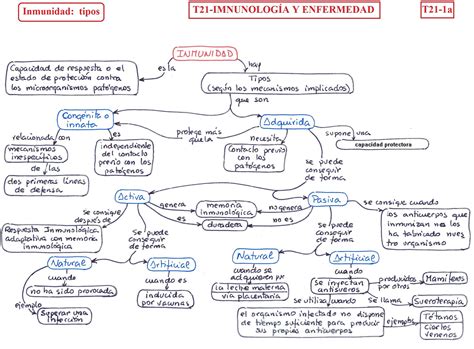 Inmunidad: tipos
T21-IMNUNOLOGÍA Y ENFERMEDAD
T21-1a
INMUNIDAD
es la
hay
Capacidad de respuesta o el
estado de protección contra
los microorganismos patógenos
Tipos
(según los mecanismos implicados)
que son
Congénita o
innata
Adquirida
relacionada con
es
protege más
que la
necesita
supone una
capacidad protectora
mecanismos
inespecíficos
de las
dos primeras líneas
de defensa
independiente
del contacto
previo con los
patógenos
Contacto previo
con los
patógenos
se puede
conseguir
de forma
Activa
genera
memoria
inmunológica
no genera
Pasiva
es
duradera
no es
se consigue
después de
Respuesta Inmunológica
adaptativa con memoria
inmunológica
se puede
conseguir
de forma
se puede
conseguir
de forma
se consigue cuando
los anticuerpos que
inmunizan no los
ha fabricado nues
tro organismo
Natural
Artificial
cuando
no ha sido provocada
ejemplo
Superar una
infección
cuando
es
inducida
por vacunas
Natural
Artificial
cuando se
adquieren por
la leche materna
vía placentaria
cuando
se inyectan
antisueros
producidos
por otros
Mamíferos
se utiliza cuando
se llama
Sueroterapia
el organismo infectado no dispone
de tiempo suficiente para producir
sus propios anticuerpos
ejemplo
Tétanos
Ciertos
venenos